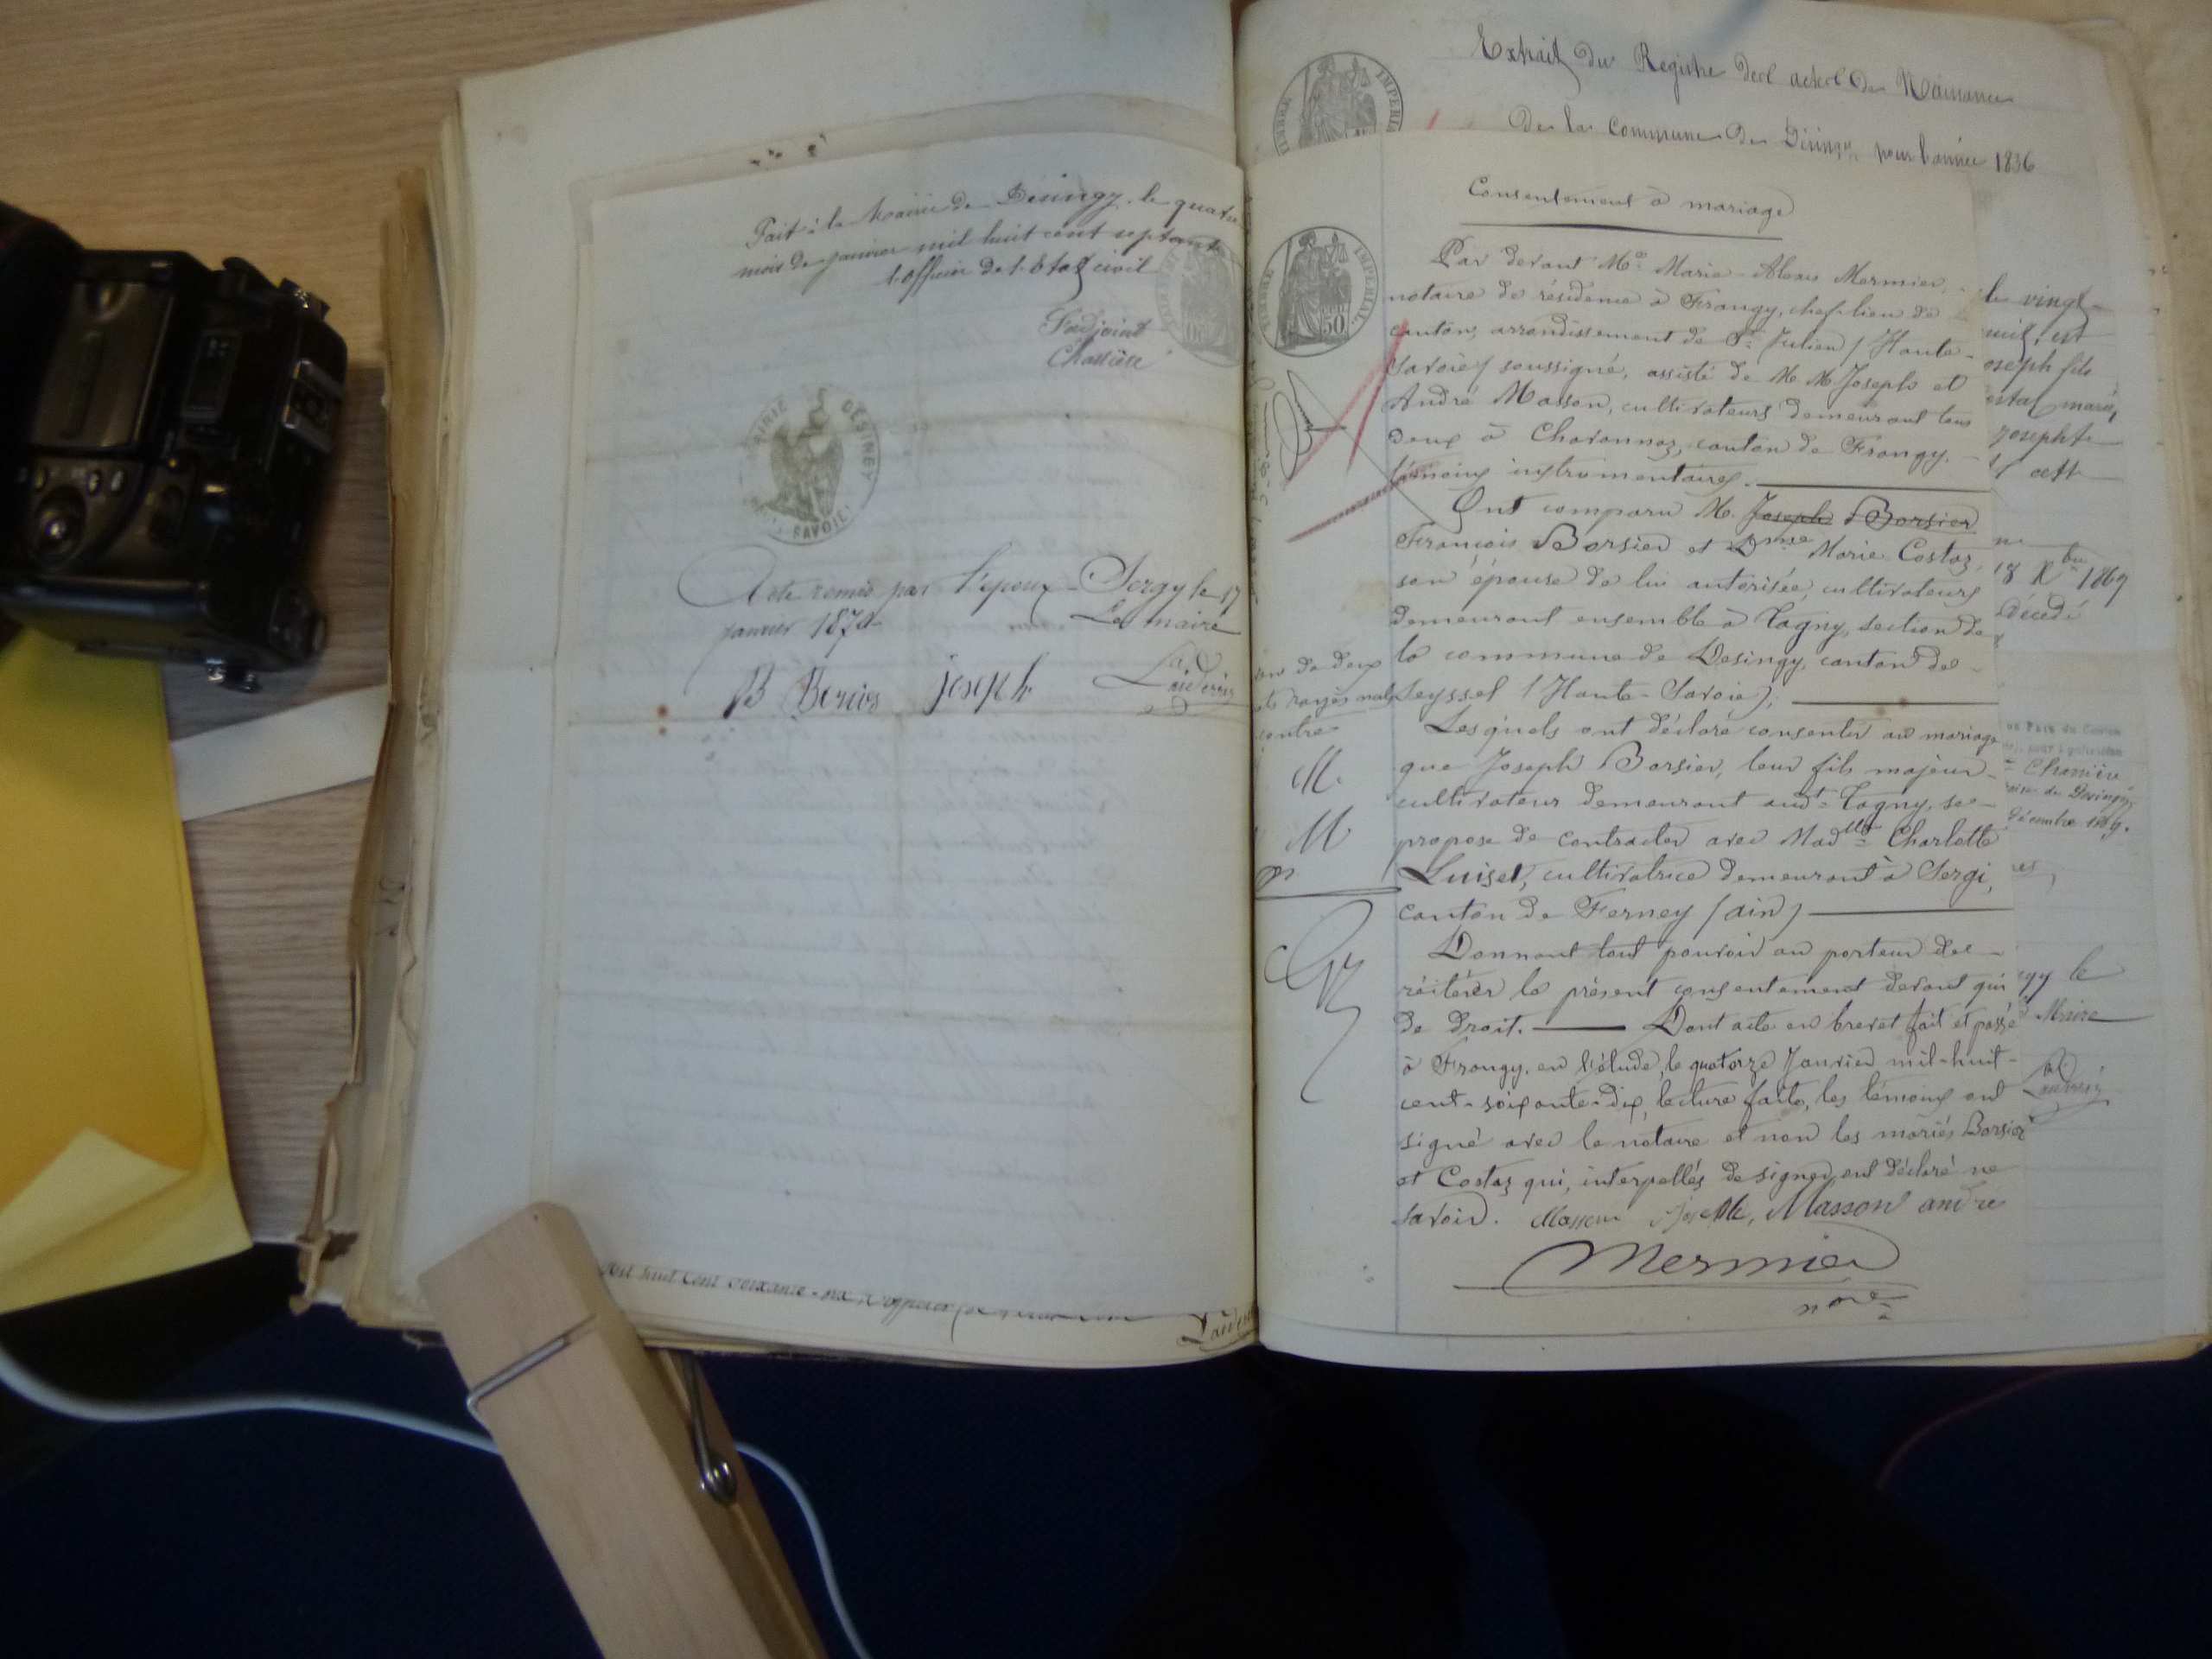 Fait à la Mairie de Desingy le quatre
mois de janvier mil huit cent septante
l'officier de l'Etat civil
L'adjoint
Chassière
MAIRIE DÉSINGY
SAVOIE
Acte remis par l'époux Sergy le 17
janvier 1870
Le maire
B Borsier joseph
mil huit cent soixante-dix
Extrait du Registre des actes de Naissance
De la Commune de Désingy pour l'année 1836
TIMBRE IMPERIAL
TIMBRE IMPERIAL
50
Consentement à mariage
Par devant Me Marie-Alexis Mermier,
notaire de résidence à Frangy, chef-lieu de
canton, arrondissement de St Julien (Haute-
Savoie) soussigné, assisté de M.M. Joseph et
André Masson, cultivateurs demeurant tous
deux à Chavannaz, canton de Frangy.
témoins instrumentaires.
Ont comparu M. Joseph Borsier
François Borsier et Dme Marie Costaz,
son épouse de lui autorisée, cultivateurs
demeurant ensemble à Tagny, section de
la commune de Desingy, canton de
Seyssel (Haute-Savoie);
Lesquels ont déclaré consentir au mariage
que Joseph Borsier, leur fils majeur
cultivateur demeurant audt Tagny, se
propose de contracter avec Madlle Charlotte
Luiset, cultivatrice demeurant à Sergi,
canton de Ferney (ain)
Donnant tout pouvoir au porteur de
réitérer le présent consentement devant qui
de droit. Dont acte en brevet fait et passé
à Frangy, en l'étude, le quatorze Janvier mil-huit-
cent-soixante-dix, lecture faite, les témoins ont
signé avec le notaire et non les mariés Borsier
et Costaz qui, interpellés de signer, ont déclaré ne
savoir. Masson Joseph, Masson andre
Mermier
nore
de deux
rayés nuls
contre
M.
M
le vingt-
oseph fils
Josephte
cett
18 Xbre 1869
décédé
Chassière
de Desingy
décembre 1869.
gy le
Maire